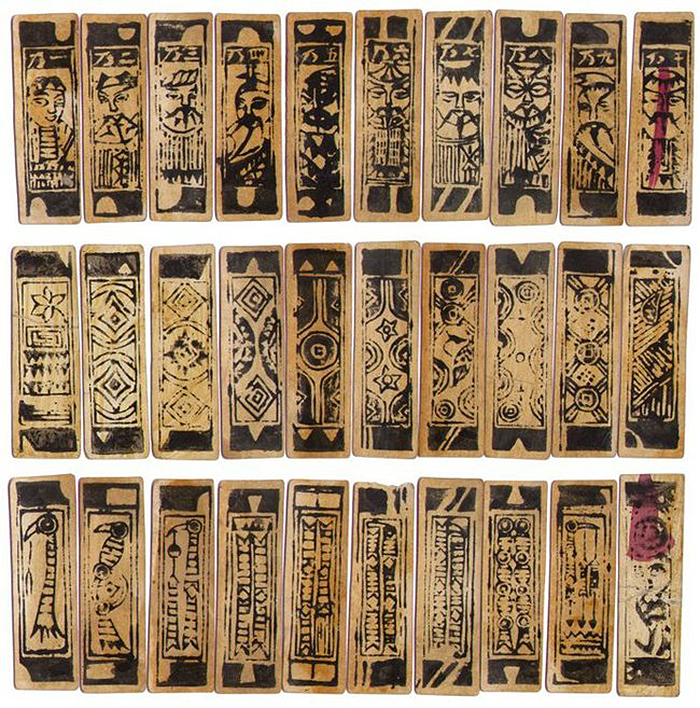 一万
二万
三万
四万
五万
六万
七万
八万
九万